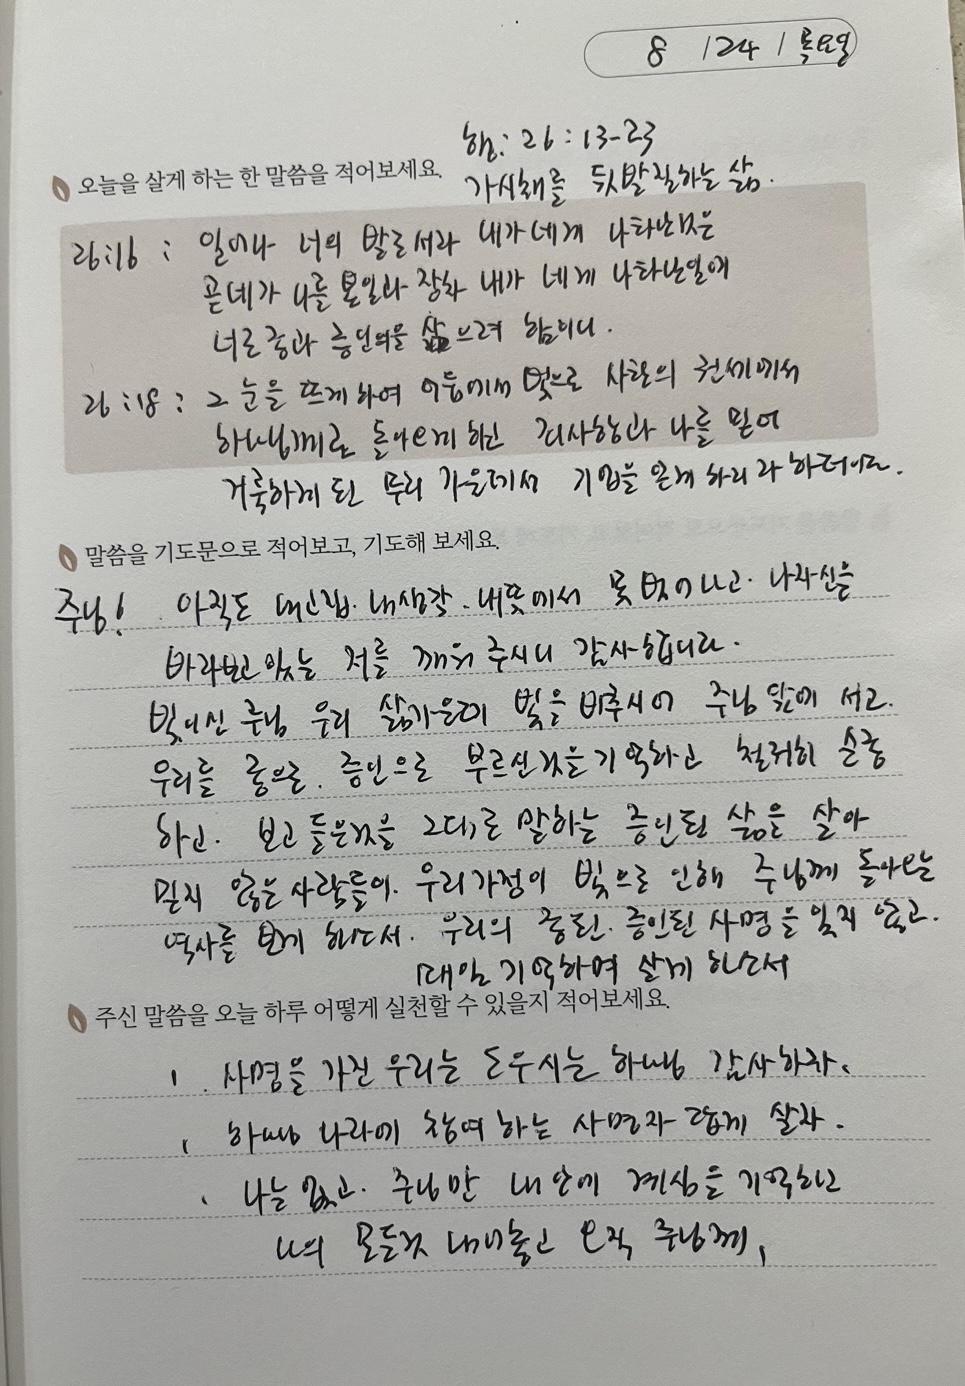 8 / 24 / 목요일
행: 26 : 13-23
오늘을 살게 하는 한 말씀을 적어보세요.
가시채를 뒷발질하는 삶.
26:16 : 일어나 너의 발로 서라 내가 네게 나타난것은
곧 네가 나를 본일과 장차 내가 네게 나타난일에
너로 종과 증인의을 삶으려 함이니.
26:18 : 그 눈을 뜨게 하여 어둠에서 빛으로 사탄의 권세에서
하나님께로 돌아오게 하고 죄사함과 나를 믿어
거룩하게 된 무리 가운데서 기업을 얻게 하리라 하더이다.
말씀을 기도문으로 적어보고, 기도해 보세요.
주님! 아직도 내고집. 내생각. 내뜻에서 못 벗어나고. 나자신을
바라보고 있는 저를 깨워 주시니 감사합니다.
빛이신 주님 우리 삶가운데 빛을 비추시어 주님 앞에 서고.
우리를 종으로. 증인으로 부르신것을 기억하고 철저히 순종
하고. 보고 들은것을 그대로 말하는 증인된 삶을 살아
믿지 않은 사람들이. 우리가정이 빛으로 인해 주님께 돌아오는
역사를 보게 하소서. 우리의 종된. 증인된 사명을 잊지 않고.
매일 기억하며 살게 하소서
주신 말씀을 오늘 하루 어떻게 실천할 수 있을지 적어보세요.
. 사명을 가진 우리는 도우시는 하나님 감사하자.
. 하나님 나라에 참여 하는 사명자 답게 살자.
. 나는 없고. 주님만 내 안에 계심을 기억하고
나의 모든것 내어놓고 오직 주님께.